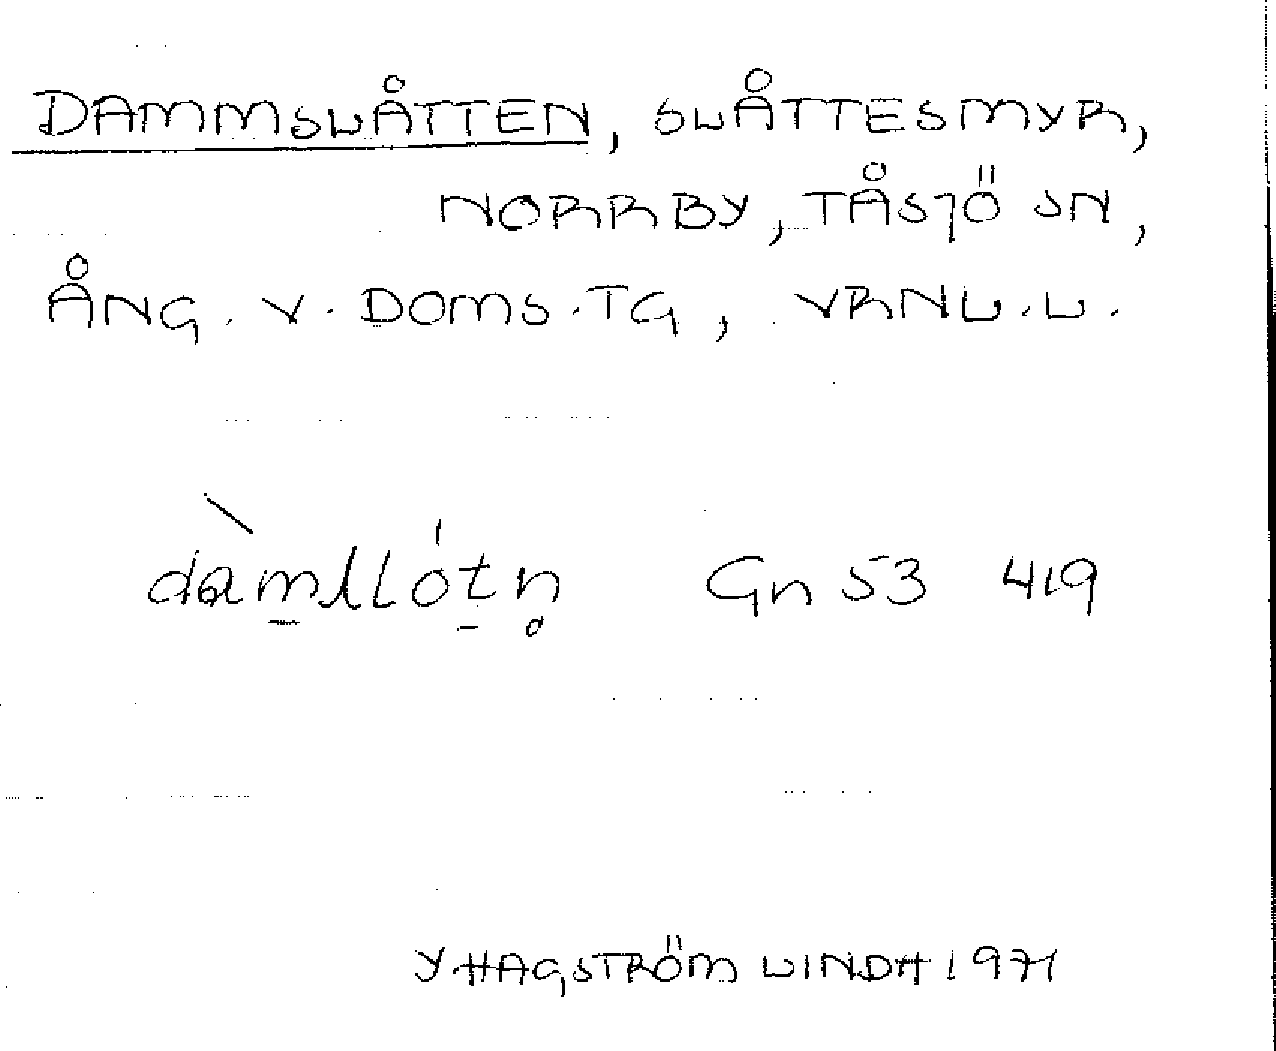 DAMMSLÅTTEN, SLÅTTESMYR,
NORRBY, TÅSJÖ SN,
ÅNG. V. DOMS.TG, VRNL.L.
Gn 53 419
Y HAGSTRÖM LINDH 1971